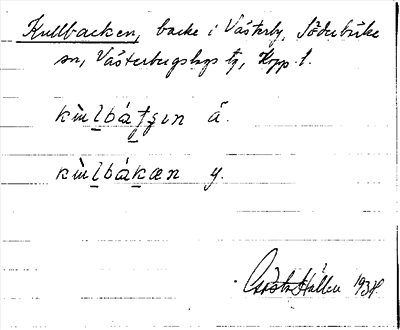 Kullbacken, backe i Västerby, Söderbärke
sn, Västerbergslags tg, Kopp. l.
kùlbáʈʂɩn ä.
kùlbákæn y.
Gösta Hallén 1934